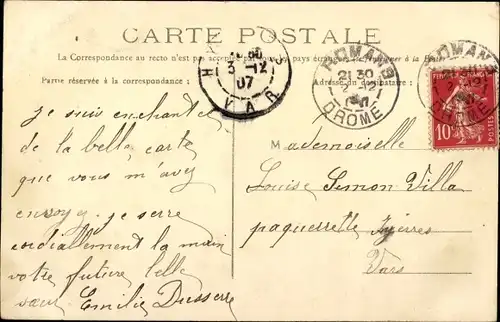 CARTE POSTALE
La Correspondance au recto n'est pas acceptée par tous les pays étrangers (Se renseigner à la Poste)
Partie réservée à la correspondance
Adresse du destinataire
3 -12
07
VAR
ROMANS
21 30
2 -12
DROME
ROMANS
DROME
10
je suis enchantée
de la belle carte
que vous m'avez
envoyé. je serre
cordiallement la main
votre future belle
sœur Emilie Dusserre
Mademoiselle
Louise Simon Villa
paquerrette Hyères
Vars